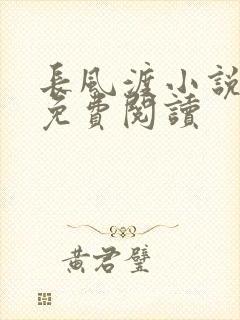 長風渡小説
免費閱讀
黃君璧